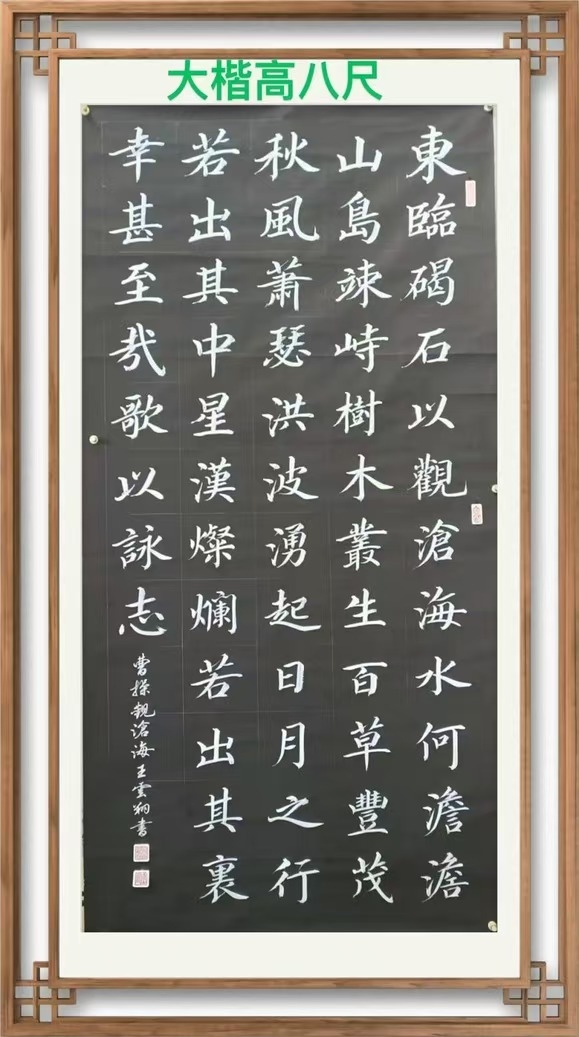 大楷高八尺
東臨碣石以觀滄海水何澹澹
山島竦峙樹木叢生百草豐茂
秋風蕭瑟洪波湧起日月之行
若出其中星漢燦爛若出其裏
幸甚至哉歌以詠志
曹操観滄海王雲翔書